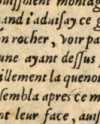 and i'aduisay ce g
n rocher, voir pa
une ayant dessus
illement la quenoi
sembla apres ce m
nt leur face, aui